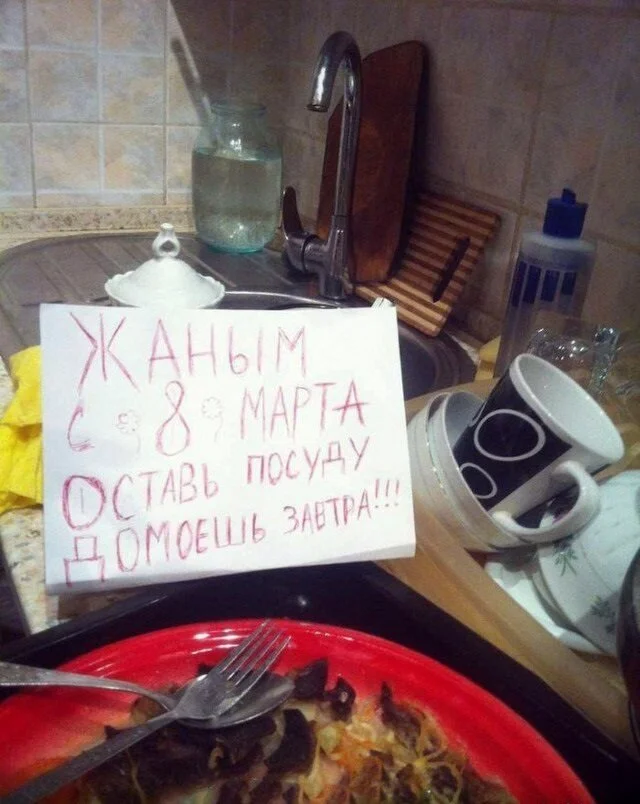 ЖАНЫМ
С 8 МАРТА
ОСТАВЬ ПОСУДУ
ДОМОЕШЬ ЗАВТРА!!!